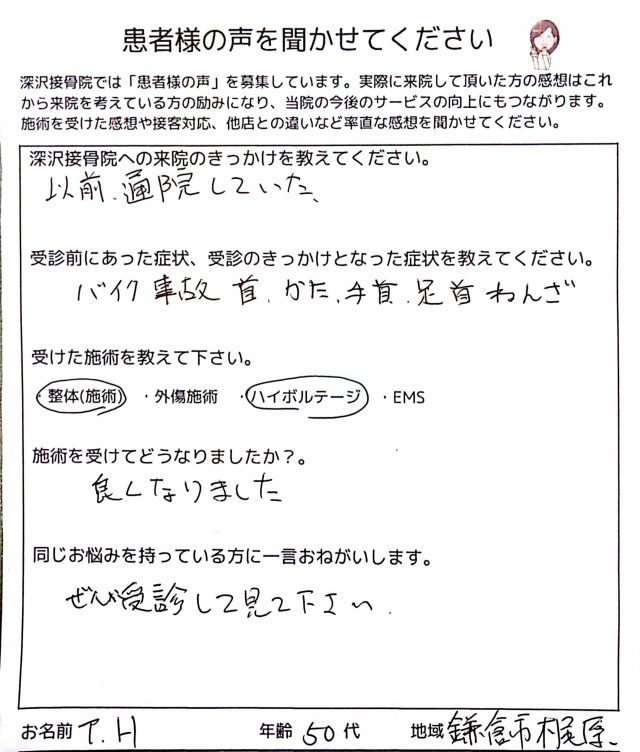 患者様の声を聞かせてください
深沢接骨院では「患者様の声」を募集しています。実際に来院して頂いた方の感想はこれ
から来院を考えている方の励みになり、当院の今後のサービスの向上にもつながります。
施術を受けた感想や接客対応、他店との違いなど率直な感想を聞かせてください。
深沢接骨院への来院のきっかけを教えてください。
以前、通院していた、
受診前にあった症状、受診のきっかけとなった症状を教えてください。
バイク事故 首、かた、手首、足首 ねんざ
受けた施術を教えて下さい。
・整体(施術) ・外傷施術 ・ハイボルテージ ・EMS
施術を受けてどうなりましたか？。
良くなりました
同じお悩みを持っている方に一言おねがいします。
受診して見て下さい.
お名前 T.H 年齢 50 代 地域 鎌倉市梶原、